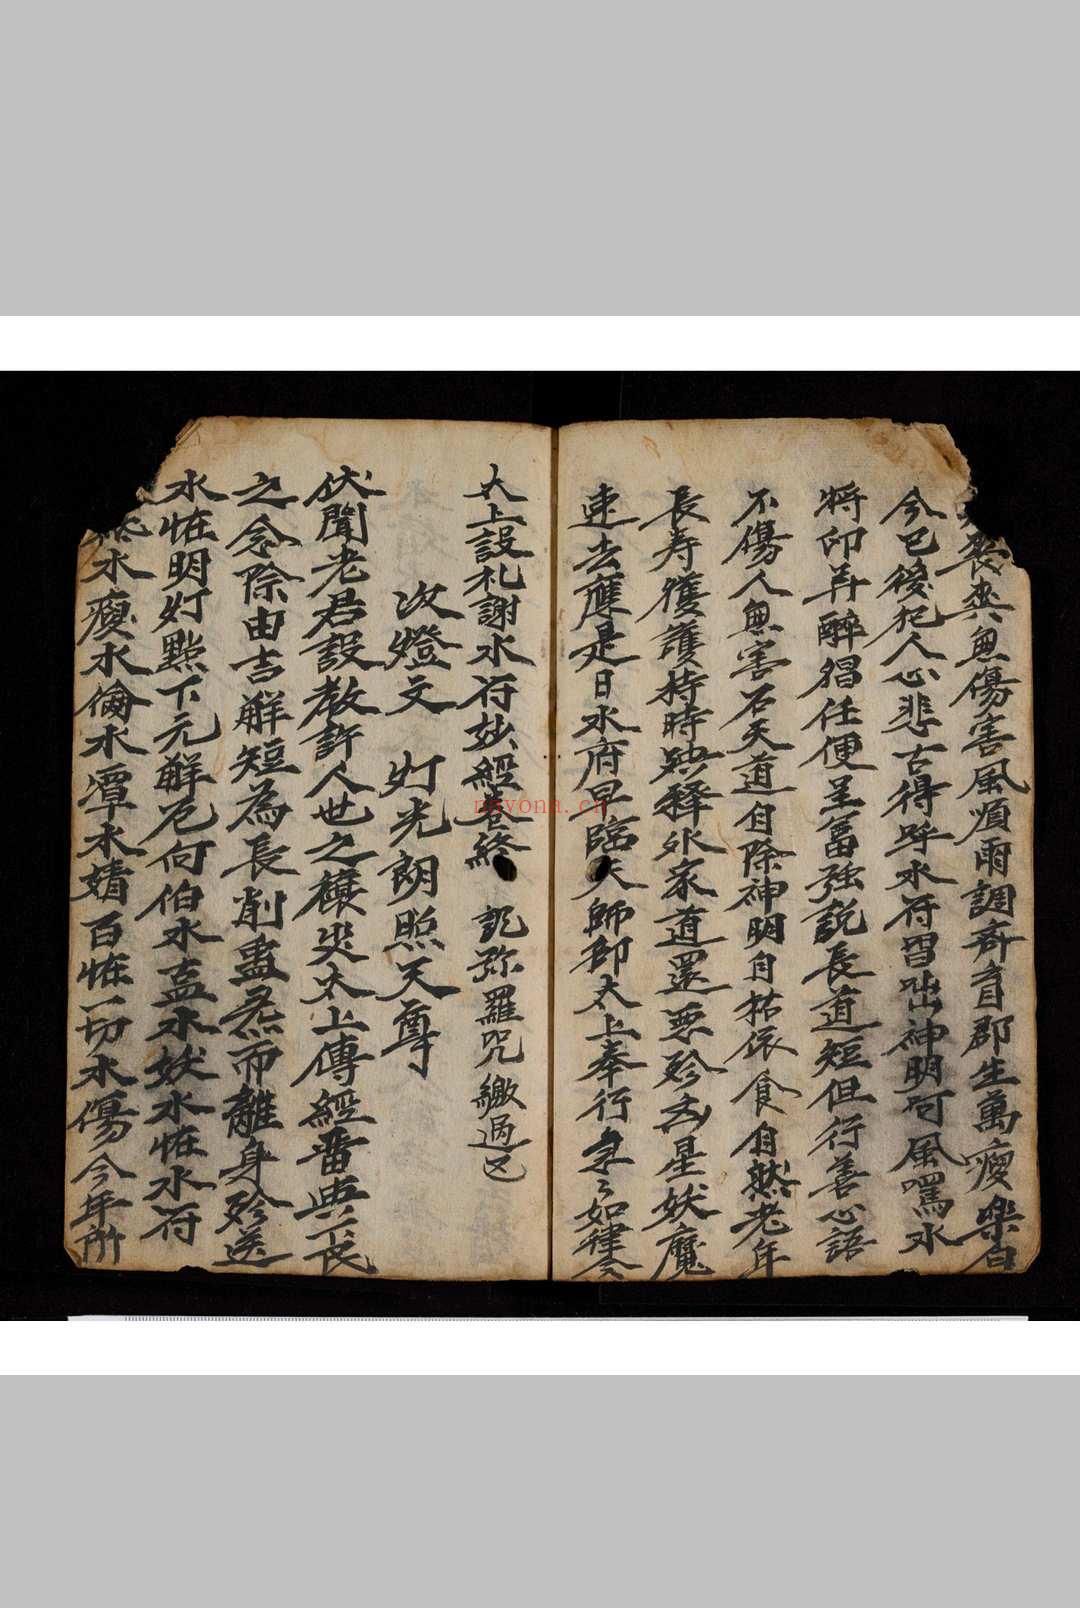 喪與無傷害風順雨調齊育郡生萬瘦樂自
今已後犯人心悲古得呼水符習出神明可風罵水
將印并醉猖任便呈富強說長道短但行善心語
不傷人無害石天道自除神明自枯依食自然老年
長寿獲護持時釋外家道還要殄凶星妖魔
速去應是日水府早臨天師郎太上奉行急〻如律令
太上設礼謝水符玅經卷終 說弥羅咒繳過已
次燈文 灯光朗照天尊
伏聞老君設教許人世之禳災太上傳經啻典士民
之念除由吉解短為長削蚩而離身殄送
水恠明灯點下元解厄何伯水孟水妖水恠水符
水瘦水倫水潭水婧百恠一切水傷今年所
nayona.cn